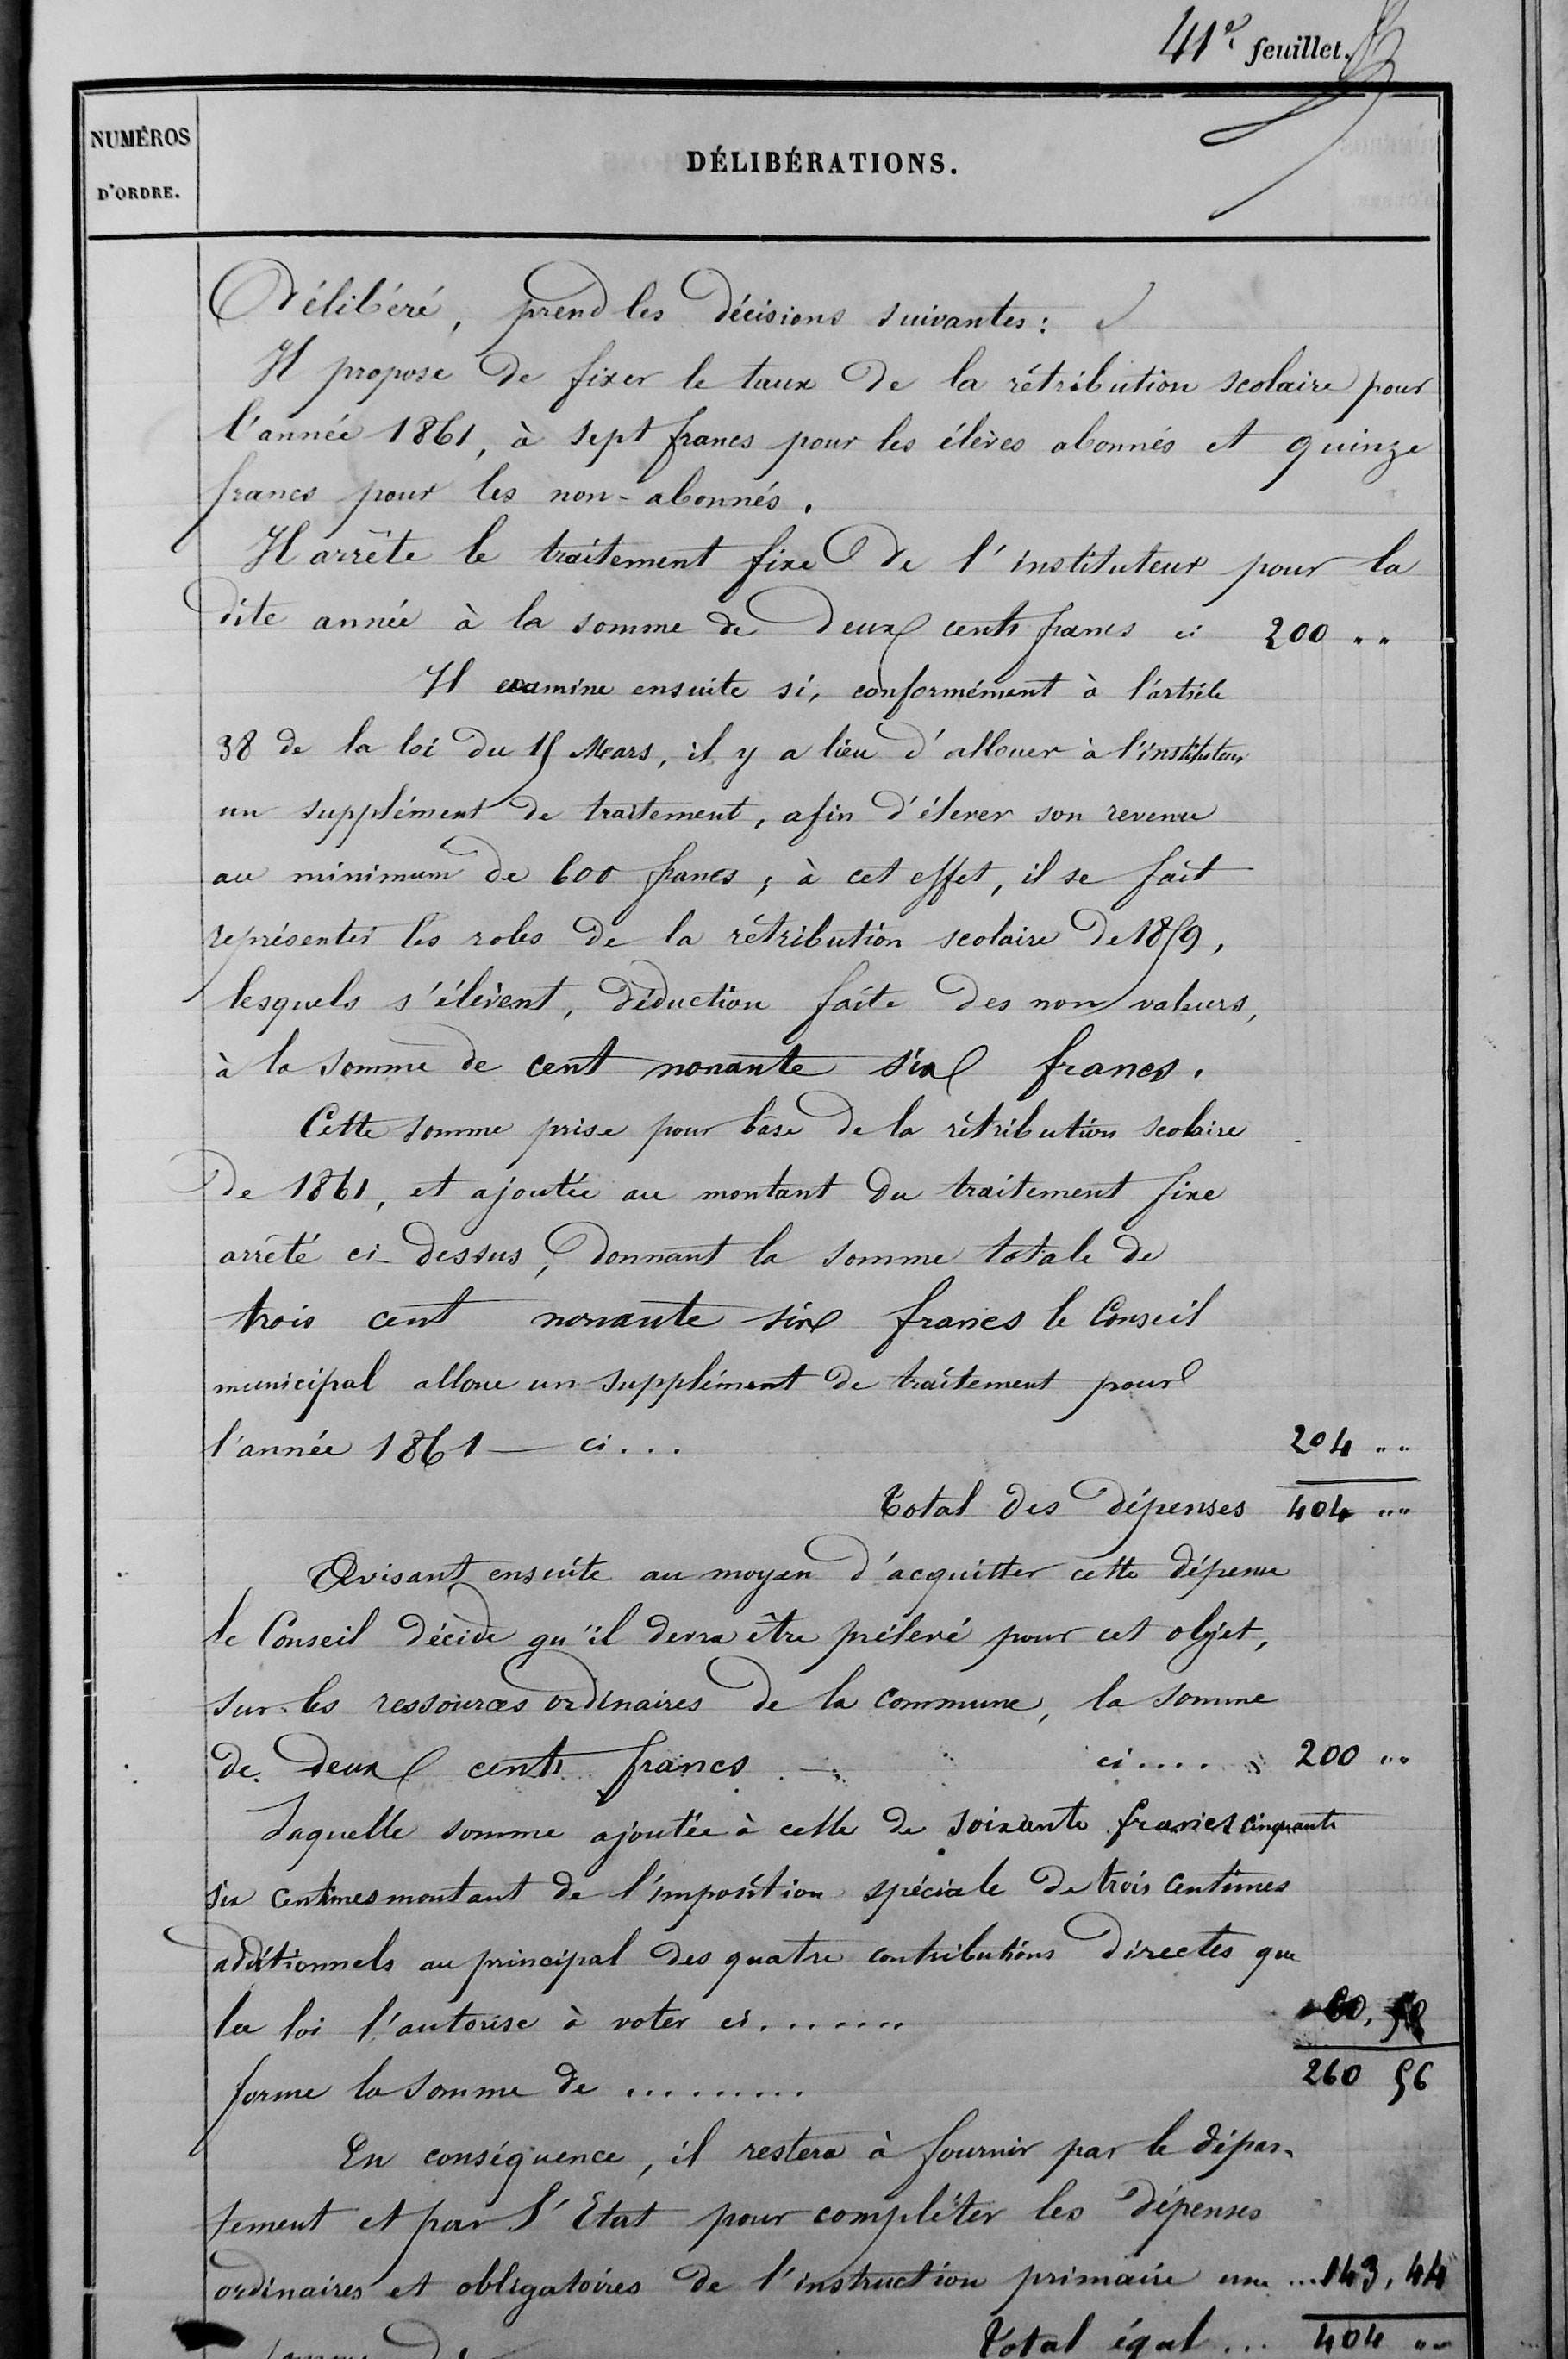 41e feuillet.
NUMÉROS
D'ORDRE.
DÉLIBÉRATIONS.
Délibéré, prend les décisions suivantes :
Il propose de fixer le taux de la rétribution scolaire pour
l'année 1861, à sept francs pour les élèves abonnés et quinze
francs pour les non-abonnés.
Il arrête le traitement fixe de l'instituteur pour la
dite année à la somme de deux cents francs ci 200 ""
Il examine ensuite si, conformément à l'article
38 de la loi du 15 Mars, il y a lieu d'allouer à l'instituteur
un supplément de traitement, afin d'élever son revenu
au minimum de 600 francs ; à cet effet, il se fait
représenter les roles de la rétribution scolaire de 1859,
lesquels s'élèvent, déduction faite des non valeurs,
à la somme de cent nonante six francs.
Cette somme prise pour base de la rétribution scolaire
de 1861, et ajoutée au montant du traitement fixe
arrêté ci-dessus, donnant la somme totale de
trois cent nonante six francs le Conseil
municipal alloue un supplément de traitement pour
l'année 1861 — ci... 204 ""
Total des dépenses 404 ""
Avisant ensuite au moyen d'acquitter cette dépense
le Conseil décide qu'il devra être prélevé pour cet objet,
sur les ressources ordinaires de la commune, la somme
de deux cents francs — ci.... 200 ""
Laquelle somme ajoutée à celle de soixante francs cinquante
six centimes montant de l'imposition spéciale de trois centimes
additionnels au principal des quatre contributions directes que
la loi l'autorise à voter ci....... 60,
forme la somme de ......... 260 56
En conséquence, il restera à fournir par le dépar-
tement et par l'Etat pour compléter les dépenses
ordinaires et obligatoires de l'instruction primaire une ...143,44
Total égal... 404 ""